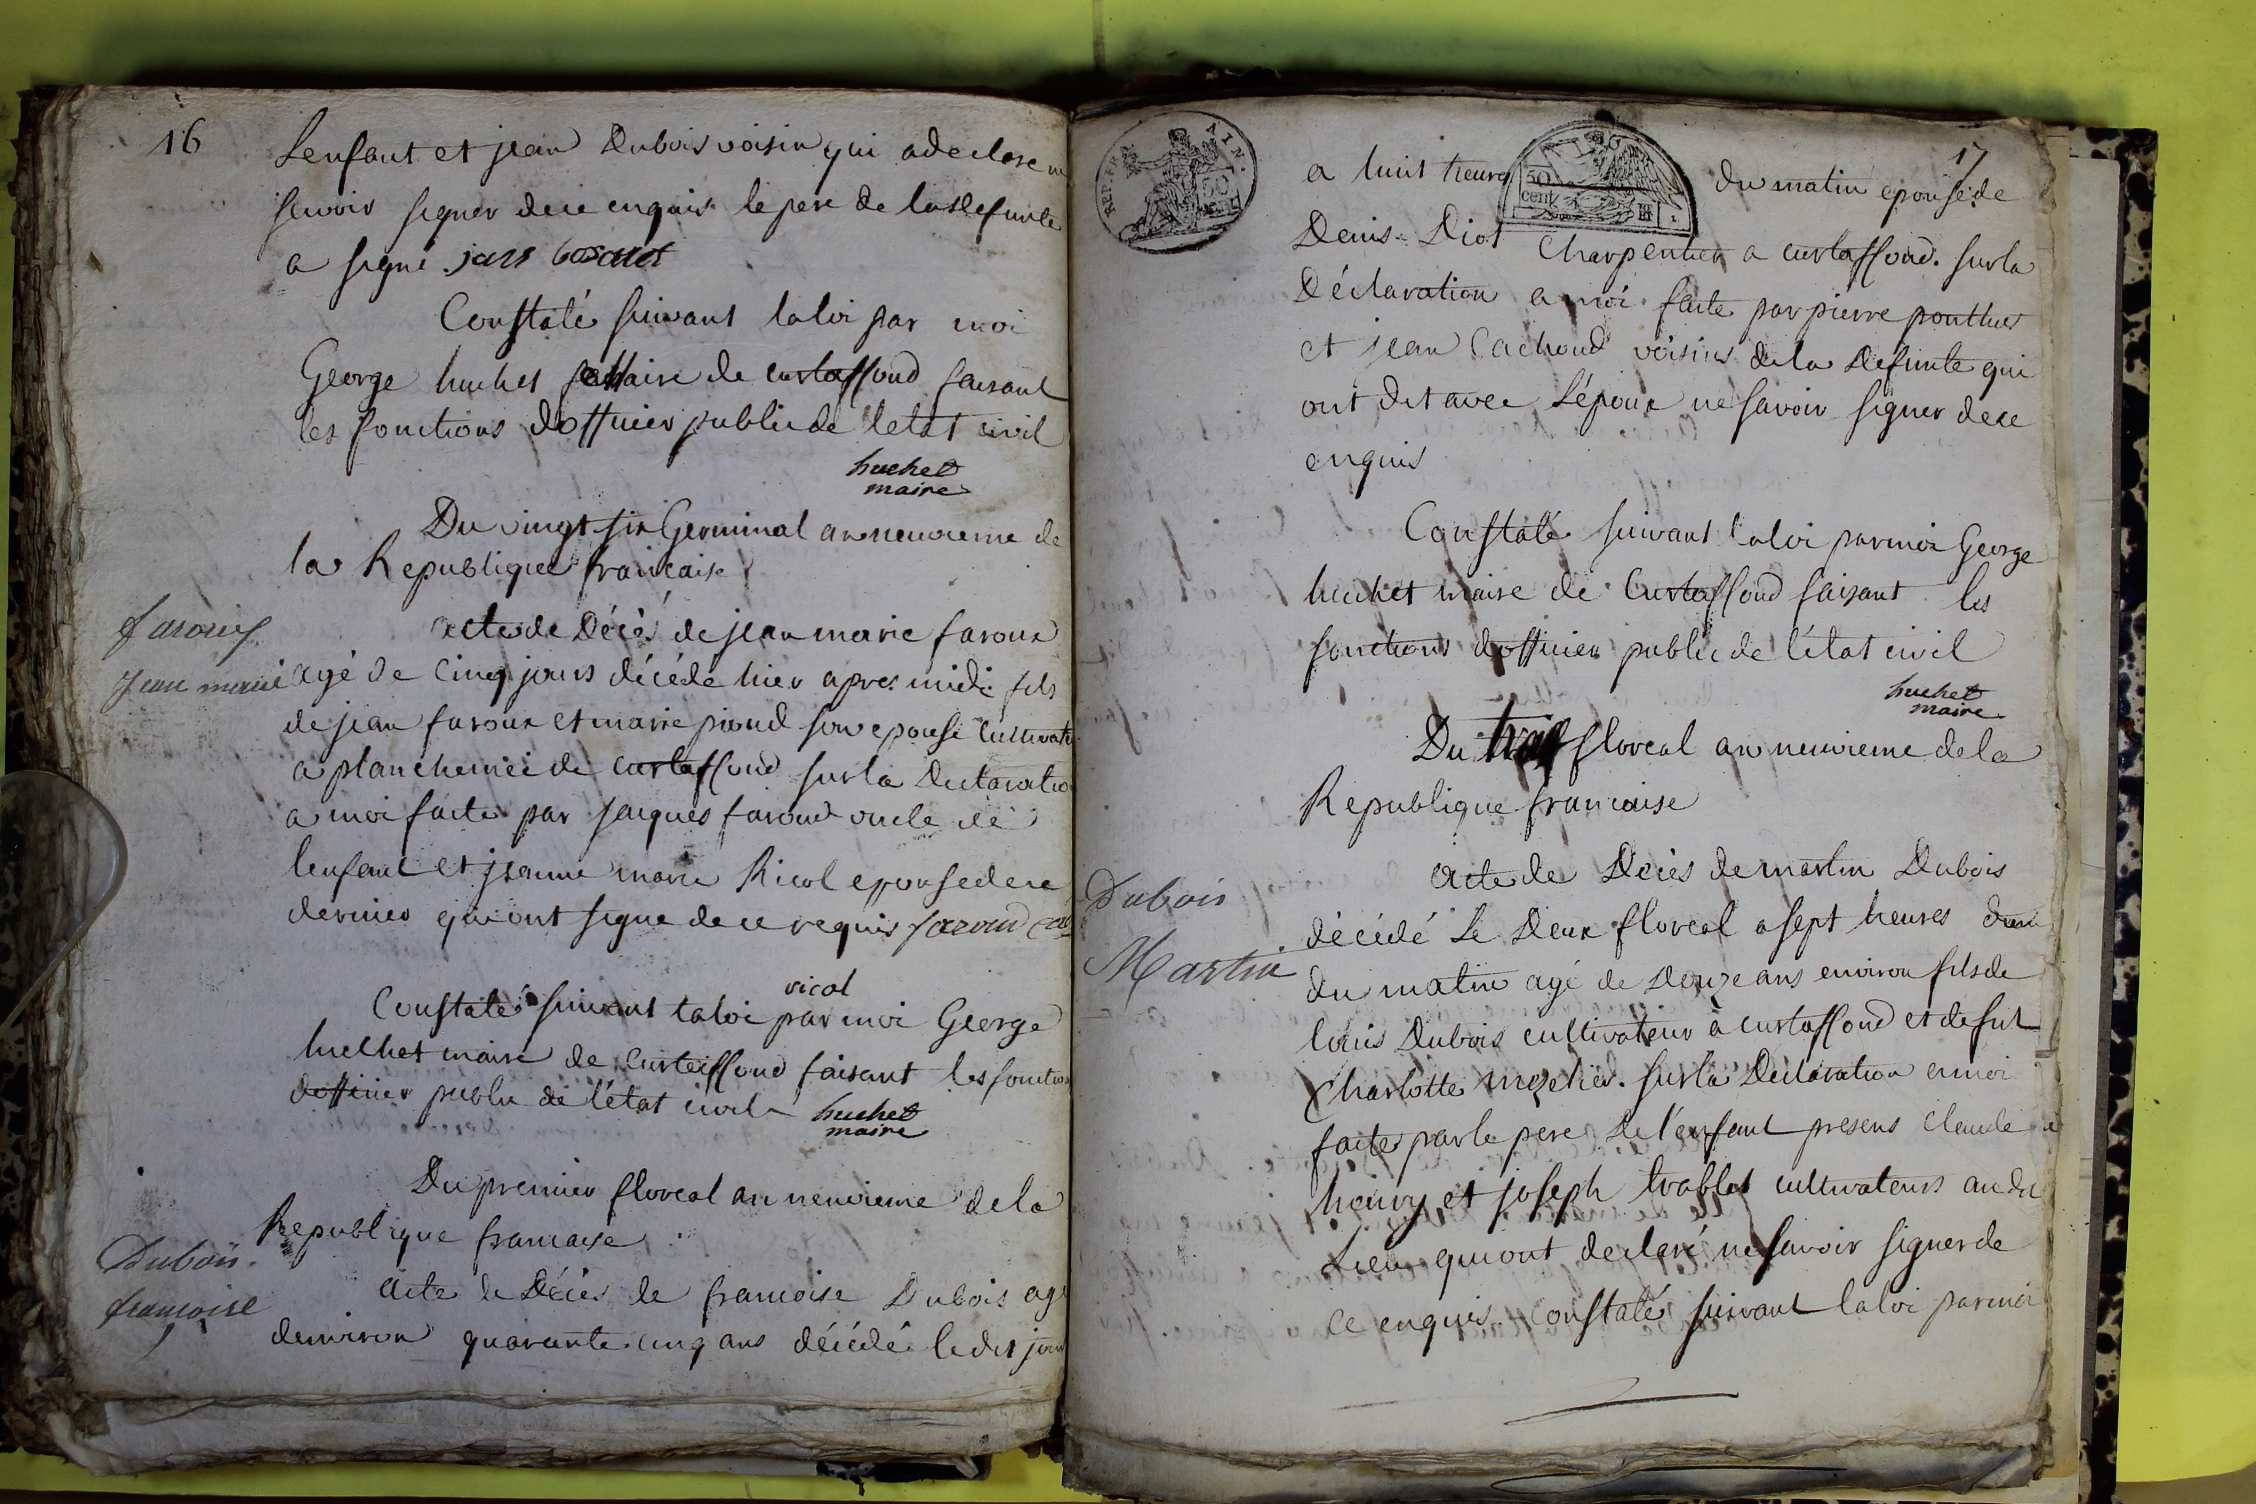 16
Lenfant et jean Dubois voisin qui a declare ne
scavoir signer dece enquis le pere de la defunte
a signé
Constaté suivant laloi par moi
George huchet maire de curtaffond faisant
les fonctions dofficier public de letat civil
huchet
maire
Du vingt six Germinal an neuvieme de
la Republique francaise
faroux
Jean marie
acte de Décès de jean marie faroux
agé de cinq jours décédé hier apres midi fils
de jean faroux et marie pioud son epouse cultivate
a planchemiée de curtaffond sur la Declaratio
a moi faite par jacques faroud oncle de
lenfant et jeanne marie Ricol epouse de ce
dernier qui ont signe de ce requis faroud
ricol
Constaté suivant la loi par moi George
huchet maire de curtaffond faisant les fonction
dofficier public de l'état civil
huchet
maire
Du premier floreal an neuvieme de la
Republique francaise
Dubois
francoise
acte de Décès de francoise Dubois agé
denviron quarante cinq ans décédé ledit jour
REP. FRA. AIN.
50
cent
17
a huit heures du matin epouse de
Denis Diot Charpentier a curtaffond. sur la
Déclaration a moi faite par pierre ponthus
et jean Cachoud voisins de la defunte qui
ont dit avec L'époux ne savoir signer de ce
enquis
Constaté suivant la loi par moi George
huchet maire de Curtaffond faisant les
fonctions dofficier public de l'état civil
huchet
maire
Du trois floreal an neuvieme de la
Republique francaise
Dubois
Martin
acte de Décès de martin Dubois
décédé Le Deux floreal a sept heures
du matin agé de Douze ans environ fils de
louis Dubois cultivateur à curtaffond et de fut
Charlotte mezelier. sur la Declaration a moi
faite par le pere de l'enfant presens Claude
heivry et joseph trablet cultivateurs au dit
Lieu qui ont declaré ne savoir signer de
ce enquis. constaté suivant la loi par moi